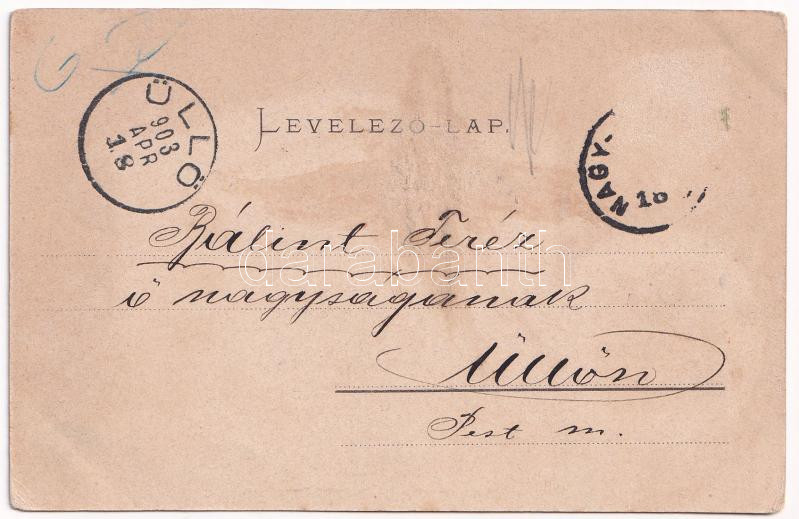 ÜLLŐ
903
APR
18
LEVELEZŐ-LAP.
NAGY-
Bálint Teréz
ő nagyságának
Üllőn
Pest m.
darabanth